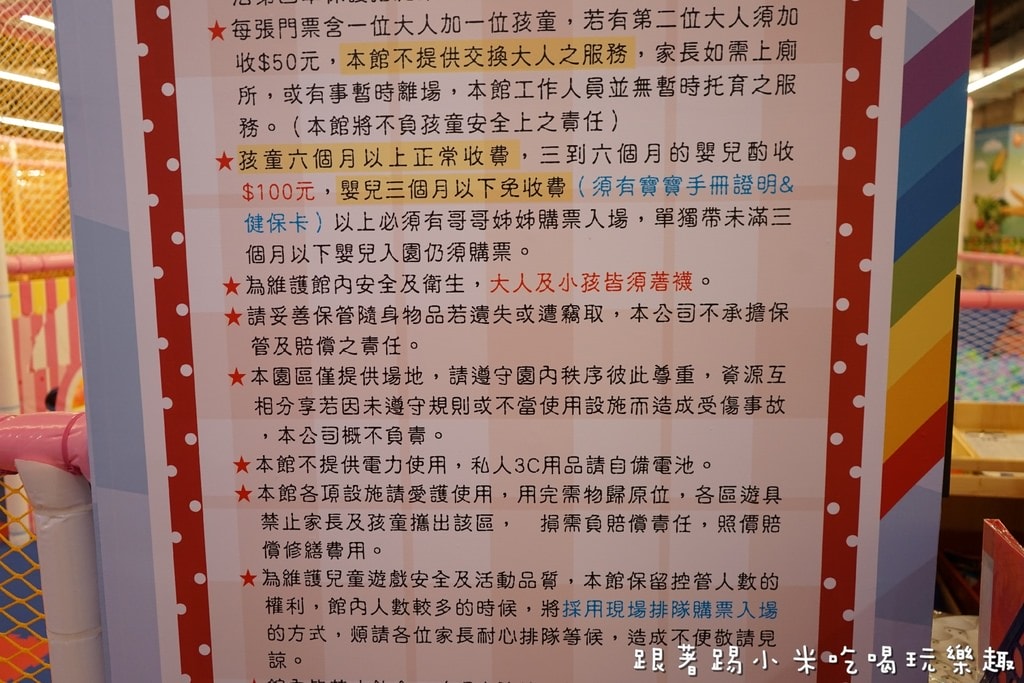 ★每張門票含一位大人加一位孩童，若有第二位大人須加
收$50元，本館不提供交換大人之服務，家長如需上廁
所，或有事暫時離場，本館工作人員並無暫時托育之服
務。（本館將不負孩童安全上之責任）
★孩童六個月以上正常收費，三到六個月的嬰兒酌收
$100元，嬰兒三個月以下免收費（須有寶寶手冊證明&
健保卡）以上必須有哥哥姊姊購票入場，單獨帶未滿三
個月以下嬰兒入園仍須購票。
★為維護館內安全及衛生，大人及小孩皆須著襪。
★請妥善保管隨身物品若遺失或遭竊取，本公司不承擔保
管及賠償之責任。
★本園區僅提供場地，請遵守園內秩序彼此尊重，資源互
相分享若因未遵守規則或不當使用設施而造成受傷事故
，本公司概不負責。
★本館不提供電力使用，私人3C用品請自備電池。
★本館各項設施請愛護使用，用完需物歸原位，各區遊具
禁止家長及孩童攜出該區，　損需負賠償責任，照價賠
償修繕費用。
★為維護兒童遊戲安全及活動品質，本館保留控管人數的
權利，館內人數較多的時候，將採用現場排隊購票入場
的方式，煩請各位家長耐心排隊等候，造成不便敬請見
諒。
跟著踢小米吃喝玩樂趣